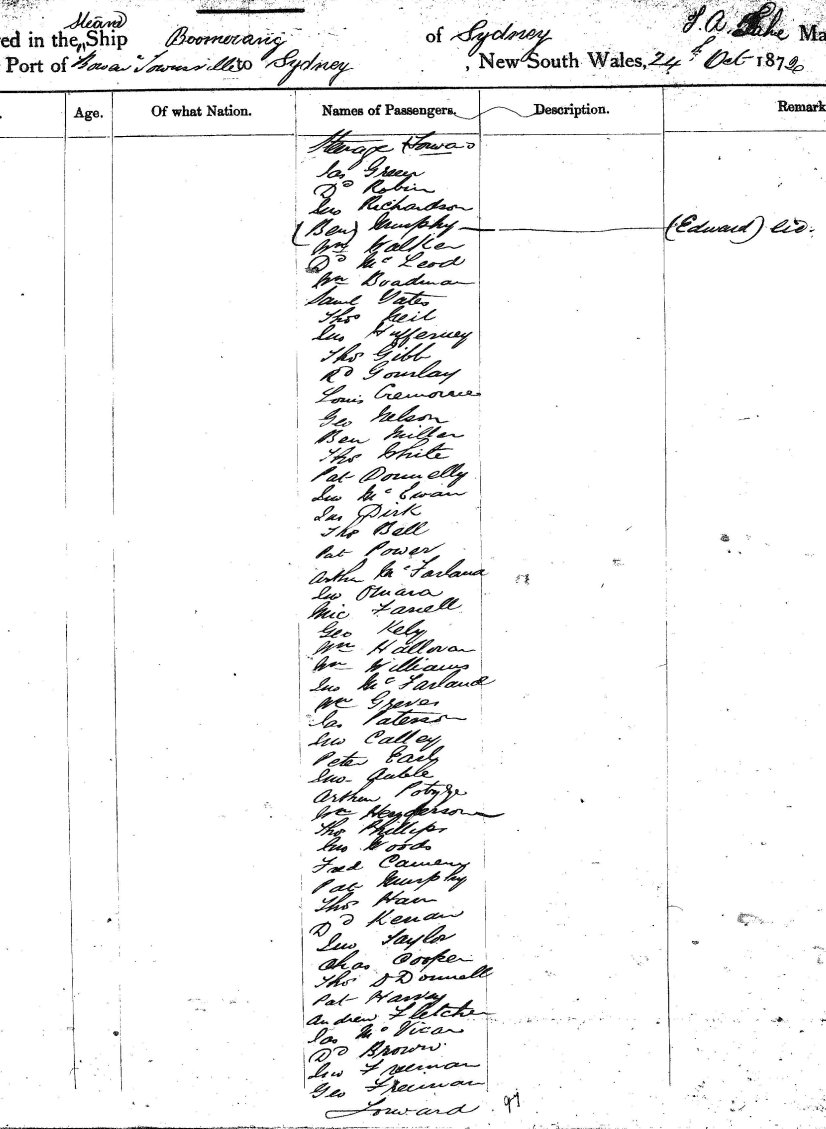 Steam
ed in the Ship Boomerang of Sydney J. A. Lake Ma
Port of Townsville to Sydney , New South Wales, 24th Oct 1872
. Age. Of what Nation. Names of Passengers. Description. Remark
Steerage
Jas Green
Do Robin
Jno Richardson
(Ben) Murphy (Edward) lid.
Wm Walker
Do McLeod
Wm Boadman
Saml Yates
Thos Neil
Jno Hufferney
Thos Gibb
Rd Gourlay
Louis
Geo Nelson
Ben Miller
Thos White
Pat Donnelly
Jno McEwan
Jas Dirk
Thos Bell
Pat Power
Arthur McFarland
Jno Omara
Mic Farrell
Geo Kely
Wm Halloran
Wm Williams
Jno McFarland
Wm Greves
Jas Paterson
Jno Calley
Peter Early
Jno
Arthur
Wm Henderson
Thos Phillips
Jno Woods
Fred Camery
Pat Murphy
Thos Ham
Do Kenan
Jno Taylor
Chas Cooper
Thos O Donnell
Pat Harvey
Andrew Fletcher
Jas McVicar
Do Brown
Jno Freeman
Geo Freeman
Forward 97